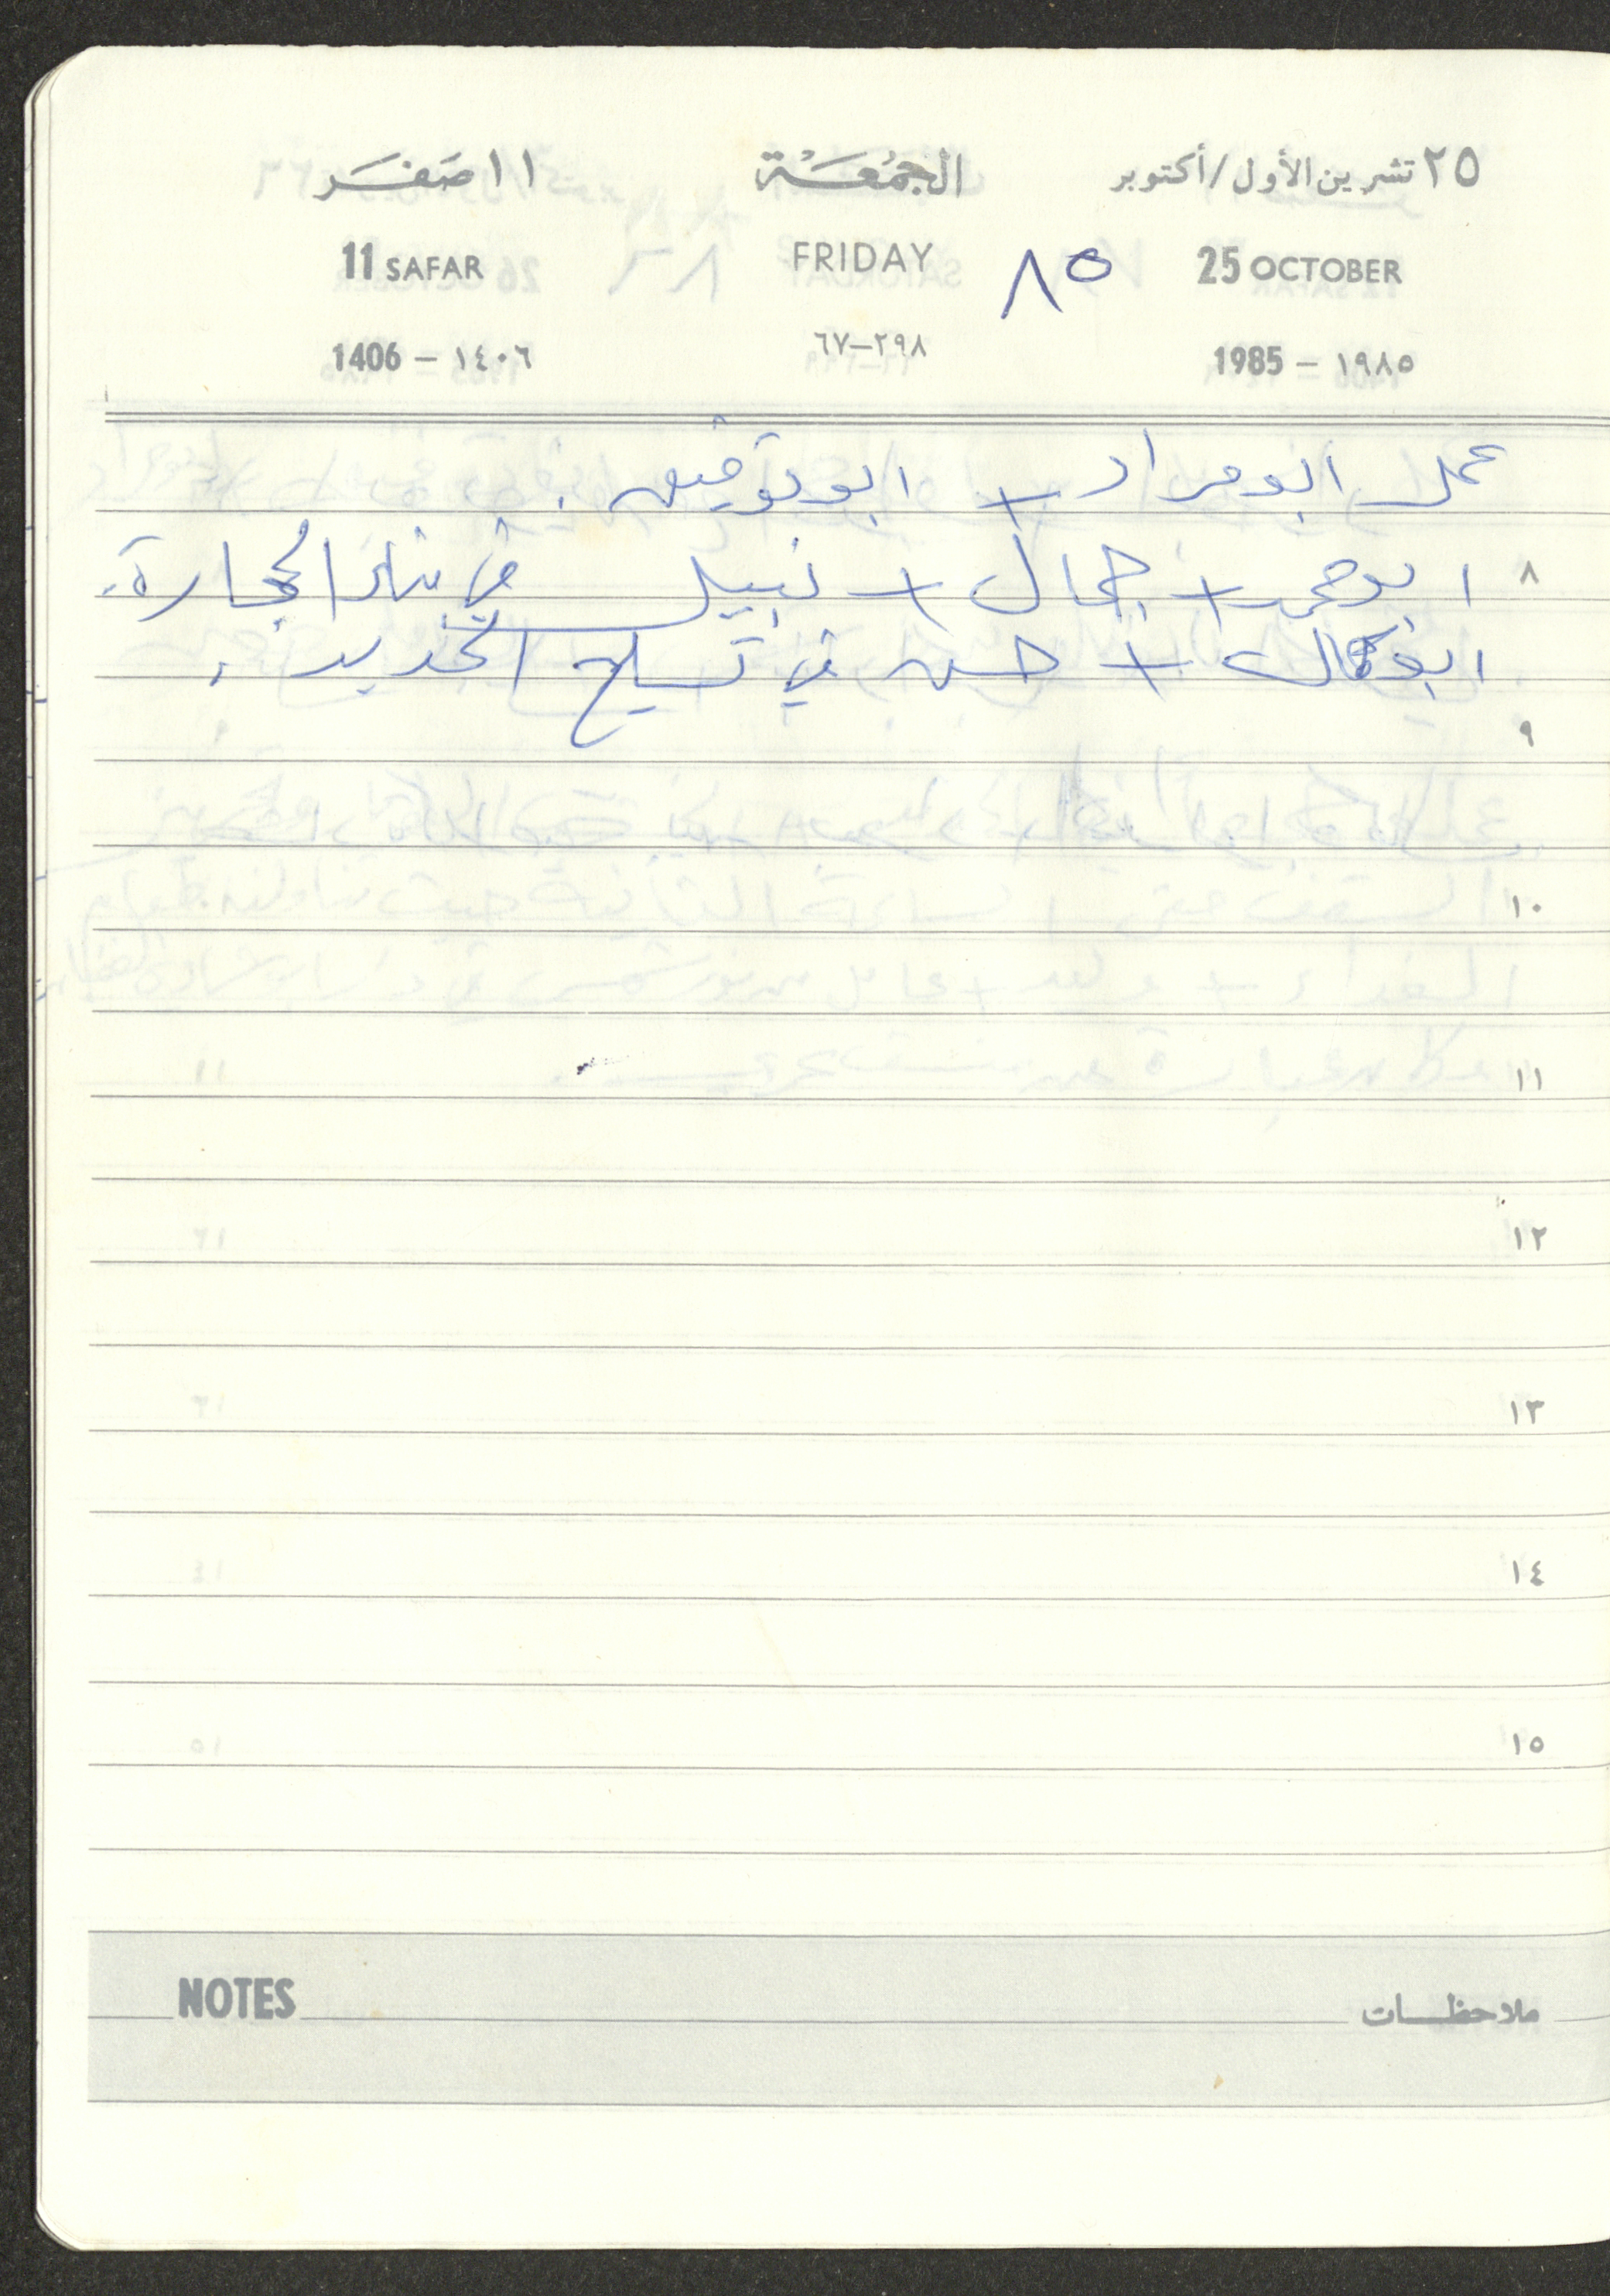 ٢٥ تشرين الأول/أكتوبر الجُمُعَة ١١ صَفَر
25 OCTOBER ٨٥ FRIDAY 11 SAFAR
1985 – ١٩٨٥ ٦٧–٢٩٨ 1406 – ١٤٠٦
عمل ابو مراد + ابو توفيق .
٨ ابو محمد + جمال + نبيل في بناء الحجارة.
ابو كمال + حسن في تسليح الحديد .
٩
١٠
١١
١٢
١٣
١٤
١٥
NOTES ملاحظات